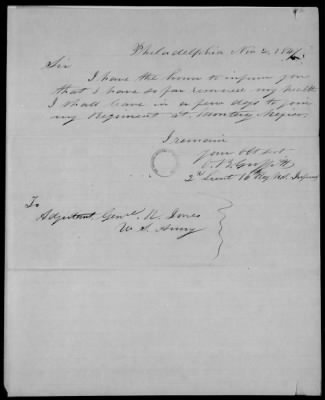 Philadelphia Nov 2, 184
Sir
I have the honor to inform you
that I have so far recovered my health
I shall leave in a few days to join
my Regiment at Monterey Mexico.
I remain
your Obt Svt
Griffith
2d Lieut 16th Reg U.S. Infany
To
Adjutant Genl. R. Jones
U. S. Army